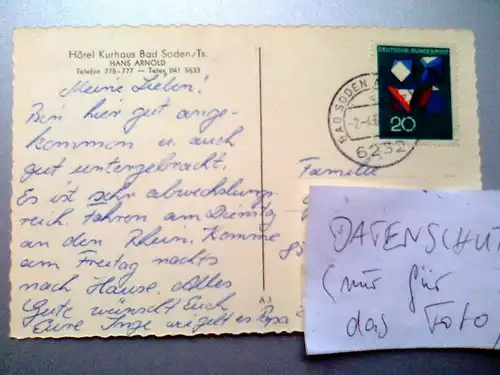 Hotel Kurhaus Bad Soden/Ts.
HANS ARNOLD
Telefon 775-777 — Telex 041 5633
Meine Lieben!
Bin hier gut ange-
kommen u. auch
gut untergebracht.
Es ist sehr abwechslungs
reich. Fahren am Dienstag
an den Rhein. Komme
am Freitag nachts
nach Hause. Alles
Gute wünscht Euch
Eure Inge wie geht es Papa
A 3
DEUTSCHE BUNDESPOST
20
BAD SODEN
6232
Familie
DATENSCHUT
(nur für
das Foto)